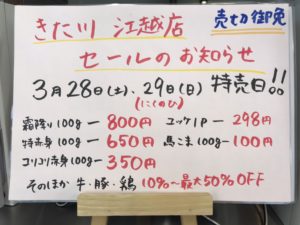 きた川 江越店
売切御免
セールのお知らせ
3月28日(土)、29日(日) 特売日!!
(にくのひ)
霜降り100g ― 800円
ユッケ1P ― 298円
特赤身100g ― 650円
馬こま100g ― 100円
コリコリ赤身100g ― 350円
そのほか 牛・豚・鶏 10%〜最大50%OFF